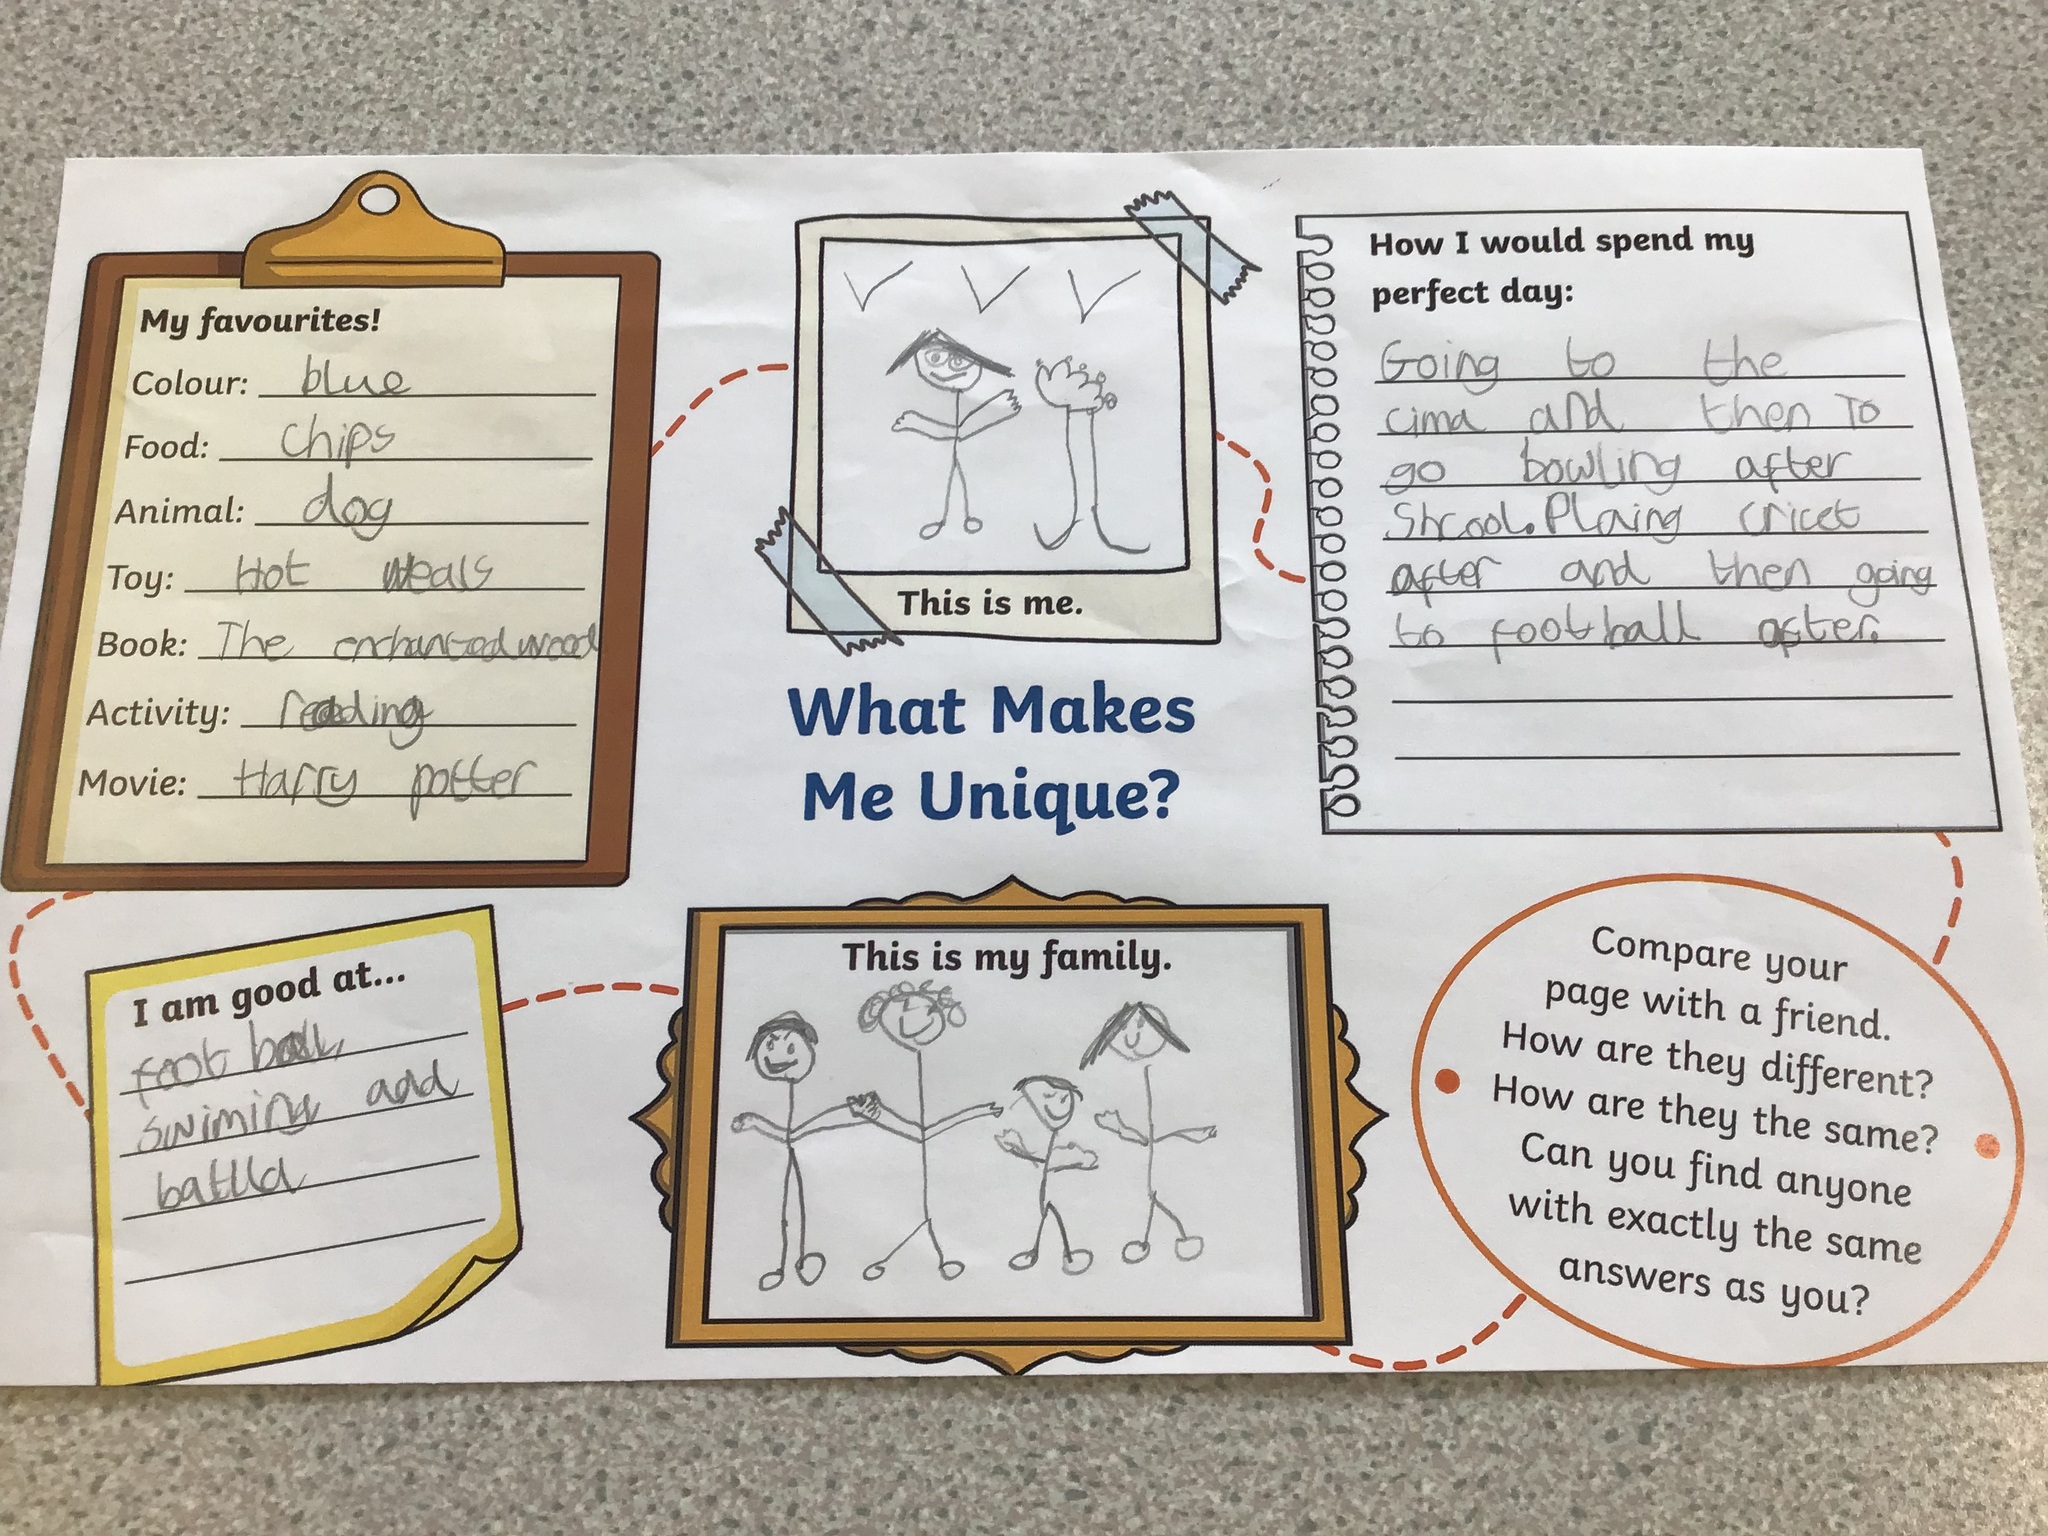 My favourites!
Colour: blue
Food: chips
Animal: dog
Toy: Hot weals
Book: The enchanted wood
Activity: reading
Movie: Harry potter
This is me.
How I would spend my
perfect day:
Going to the
cima and then To
go bowling after
Shcool. Plaing cricet
after and then going
to football after.
What Makes
Me Unique?
I am good at...
foot ball,
swiming and
This is my family.
Compare your
page with a friend.
How are they different?
How are they the same?
Can you find anyone
with exactly the same
answers as you?